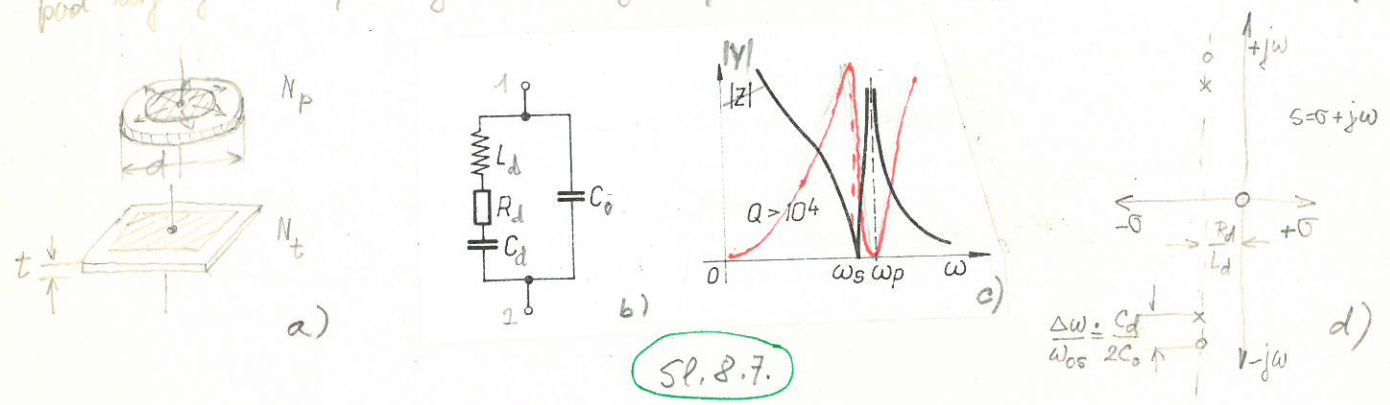 N_p
d
N_t
t
a)
1
L_d
R_d
C_d
C_0
2
b)
|Y|
|Z|
Q > 10^4
0
ω_s
ω_p
ω
c)
+jω
S=σ+jω
-σ
+σ
R_d
L_d
Δω
ω_os
≐
C_d
2C_0
-jω
d)
Sl. 8.7.